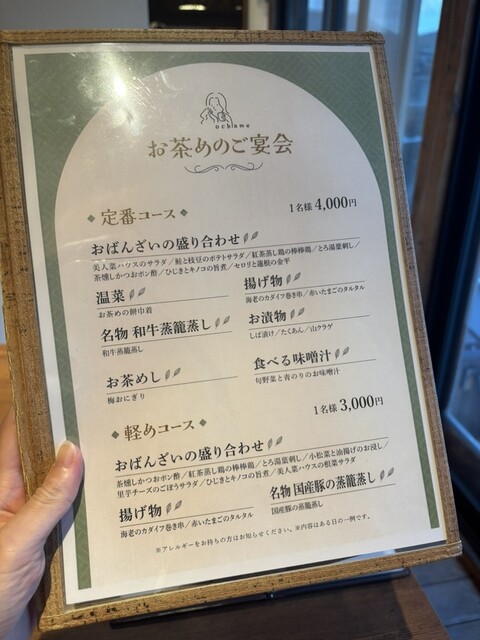 ochame
お茶めのご宴会
定番コース
1名様 4,000円
おばんざいの盛り合わせ
美人菜ハウスのサラダ/鮭と枝豆のポテトサラダ/紅茶蒸し鶏の棒棒鶏/とろ湯葉刺し/
茶燻しかつおポン酢/ひじきとキノコの旨煮/セロリと蓮根の金平
温菜
お茶めの餅巾着
揚げ物
海老のカダイフ巻き串/赤いたまごのタルタル
名物 和牛蒸籠蒸し
和牛蒸籠蒸し
お漬物
しば漬け/たくあん/山クラゲ
お茶めし
梅おにぎり
食べる味噌汁
旬野菜と青のりのお味噌汁
軽めコース
1名様 3,000円
おばんざいの盛り合わせ
茶燻しかつおポン酢/紅茶蒸し鶏の棒棒鶏/とろ湯葉刺し/小松菜と油揚げのお浸し/
里芋チーズのごぼうサラダ/ひじきとキノコの旨煮/美人菜ハウスの根菜サラダ
揚げ物
海老のカダイフ巻き串/赤いたまごのタルタル
名物 国産豚の蒸籠蒸し
国産豚の蒸籠蒸し
※アレルギーをお持ちの方はお知らせください。※内容はある日の一例です。